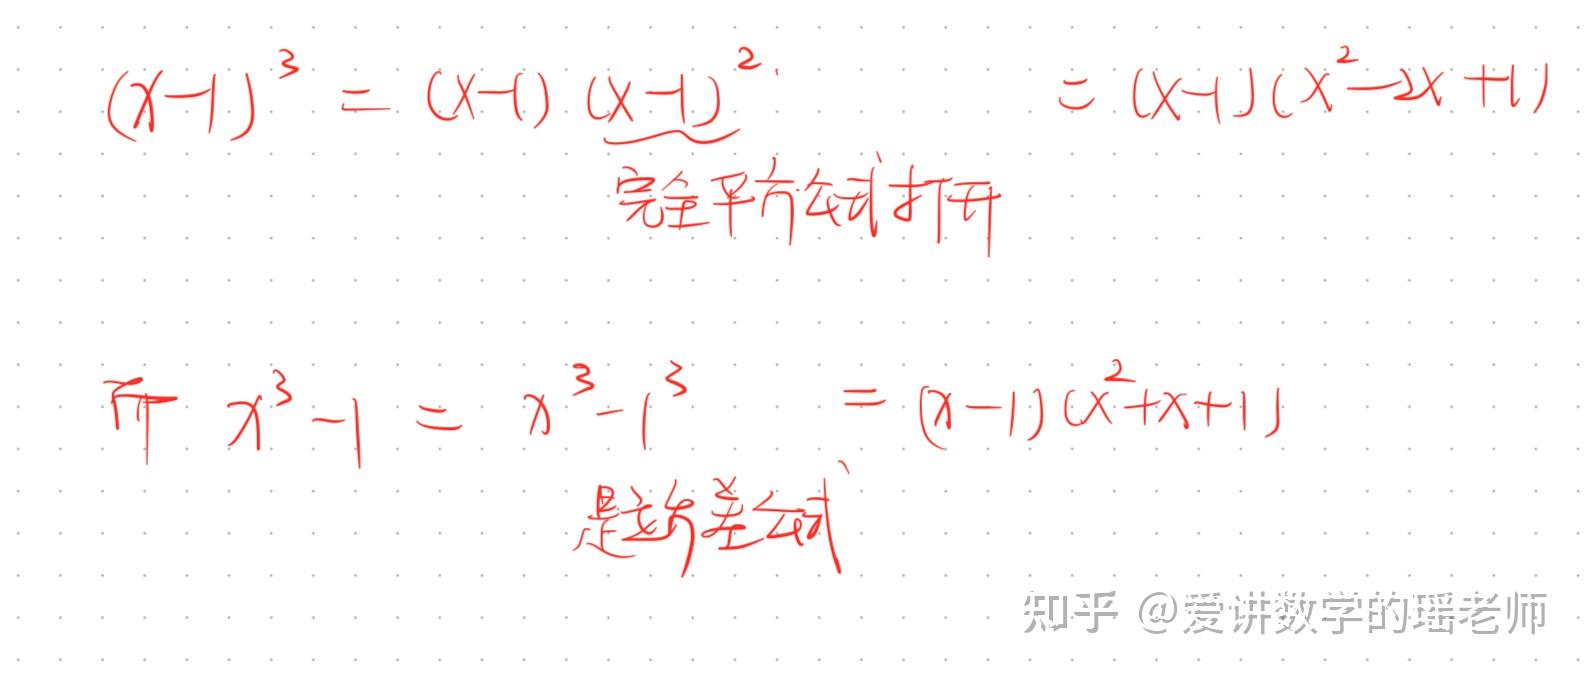 (x-1)³ = (x-1)(x-1)² = (x-1)(x²-2x+1)
完全平方公式打开
而 x³-1 = x³-1³ = (x-1)(x²+x+1)
是立方差公式
知乎 @爱讲数学的瑶老师